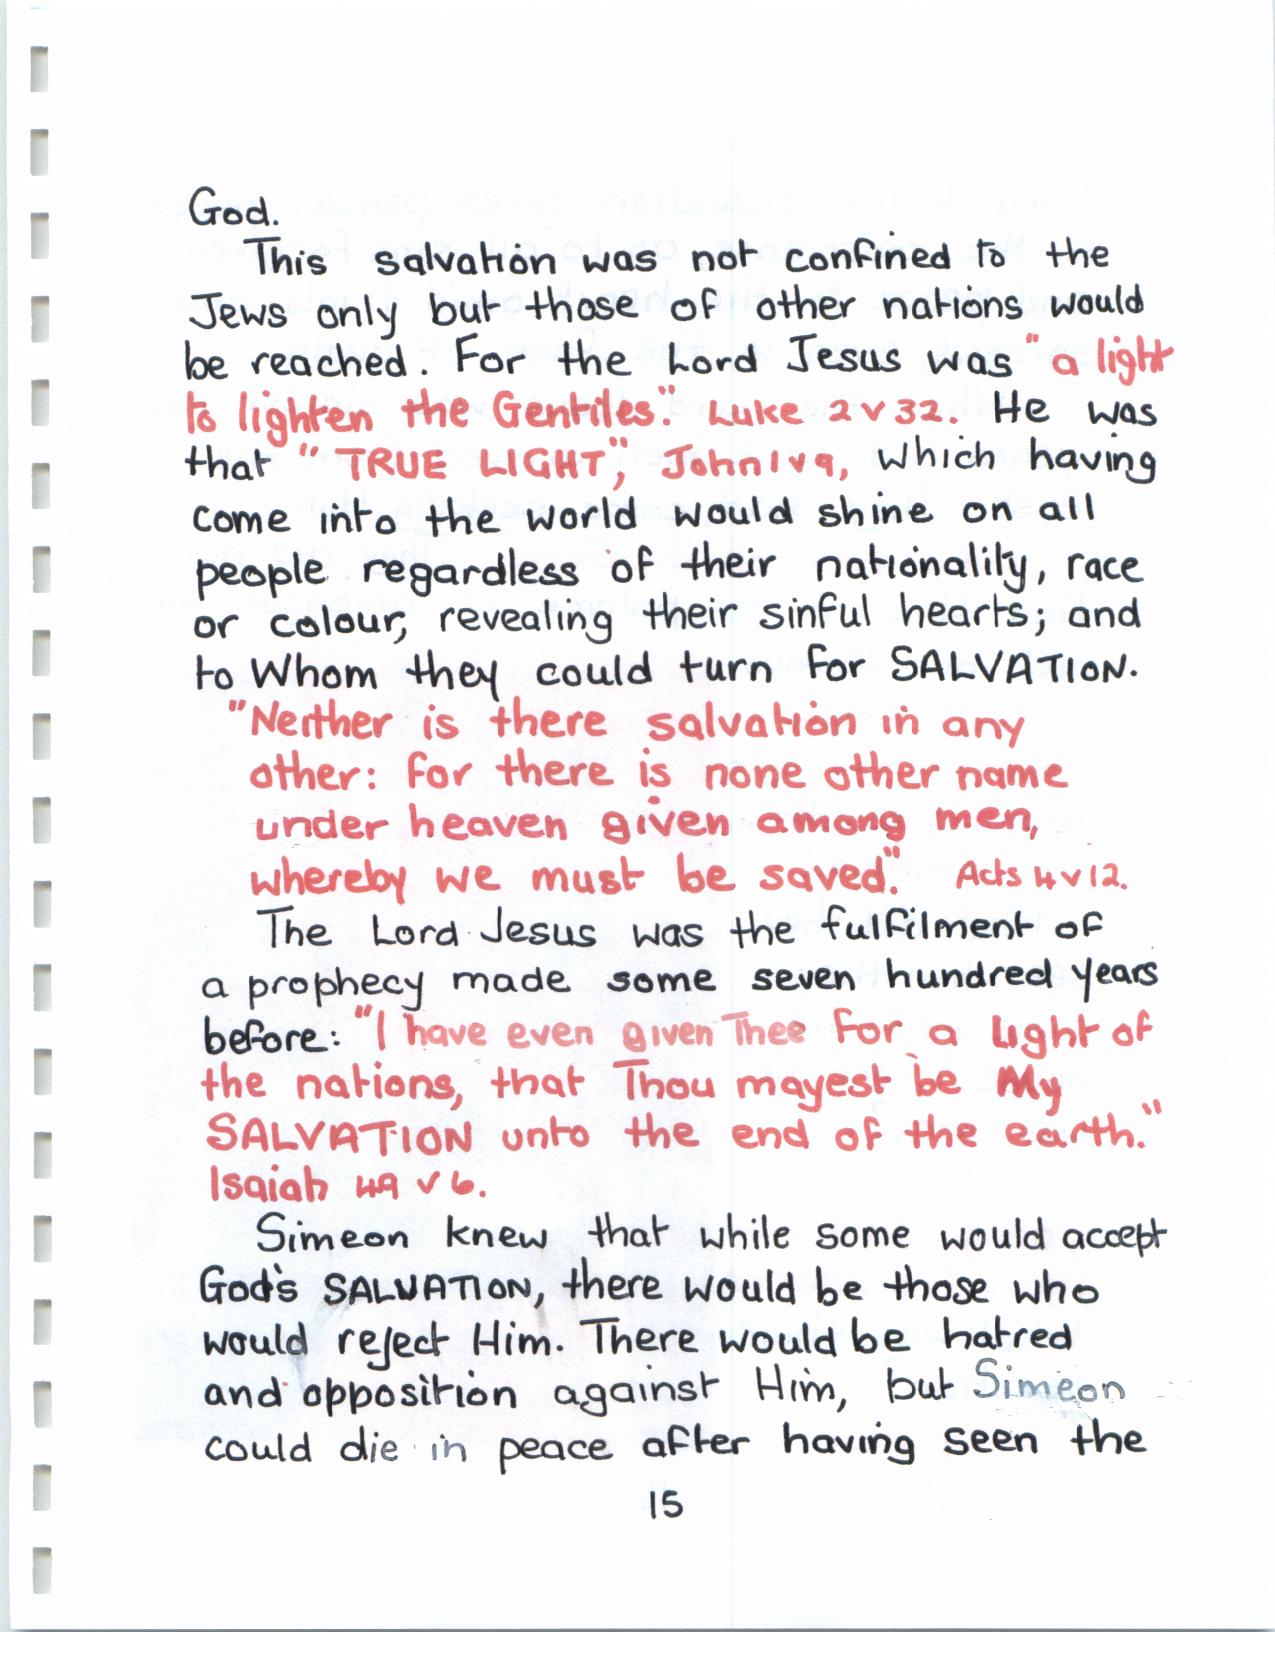 God.
This salvation was not confined to the
Jews only but those of other nations would
be reached. For the Lord Jesus was "a light
to lighten the Gentiles." Luke 2 v 32. He was
that "TRUE LIGHT", John 1 v 9, which having
come into the world would shine on all
people regardless of their nationality, race
or colour, revealing their sinful hearts; and
to Whom they could turn for SALVATION.
"Neither is there salvation in any
other: for there is none other name
under heaven given among men,
whereby we must be saved." Acts 4 v 12.
The Lord Jesus was the fulfilment of
a prophecy made some seven hundred years
before: "I have even given Thee for a light of
the nations, that Thou mayest be My
SALVATION unto the end of the earth."
Isaiah 49 v 6.
Simeon knew that while some would accept
God's SALVATION, there would be those who
would reject Him. There would be hatred
and opposition against Him, but Simeon
could die in peace after having seen the
15